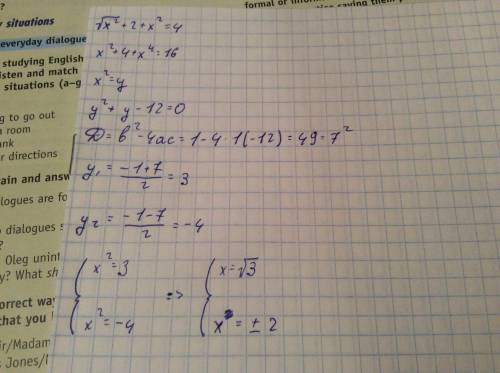 y situations
everyday dialogue
studying English
isten and match
situations (a–g
g to go out
a room
ank
r directions
ain and answ
alogues are fo
dialogues s
?
Oleg unint
y? What sh
orrect way
that you l
ir/Madam
s Jones/M
formal or informal
√x² + 2 + x² = 4
x² + 4 + x⁴ = 16
x² = y
y² + y - 12 = 0
D = b² - 4ac = 1 - 4 · 1(-12) = 49 = 7²
y₁ = (-1+7)/2 = 3
y₂ = (-1-7)/2 = -4
{ x² = 3 => { x = √3
{ x² = -4 { x = ± 2